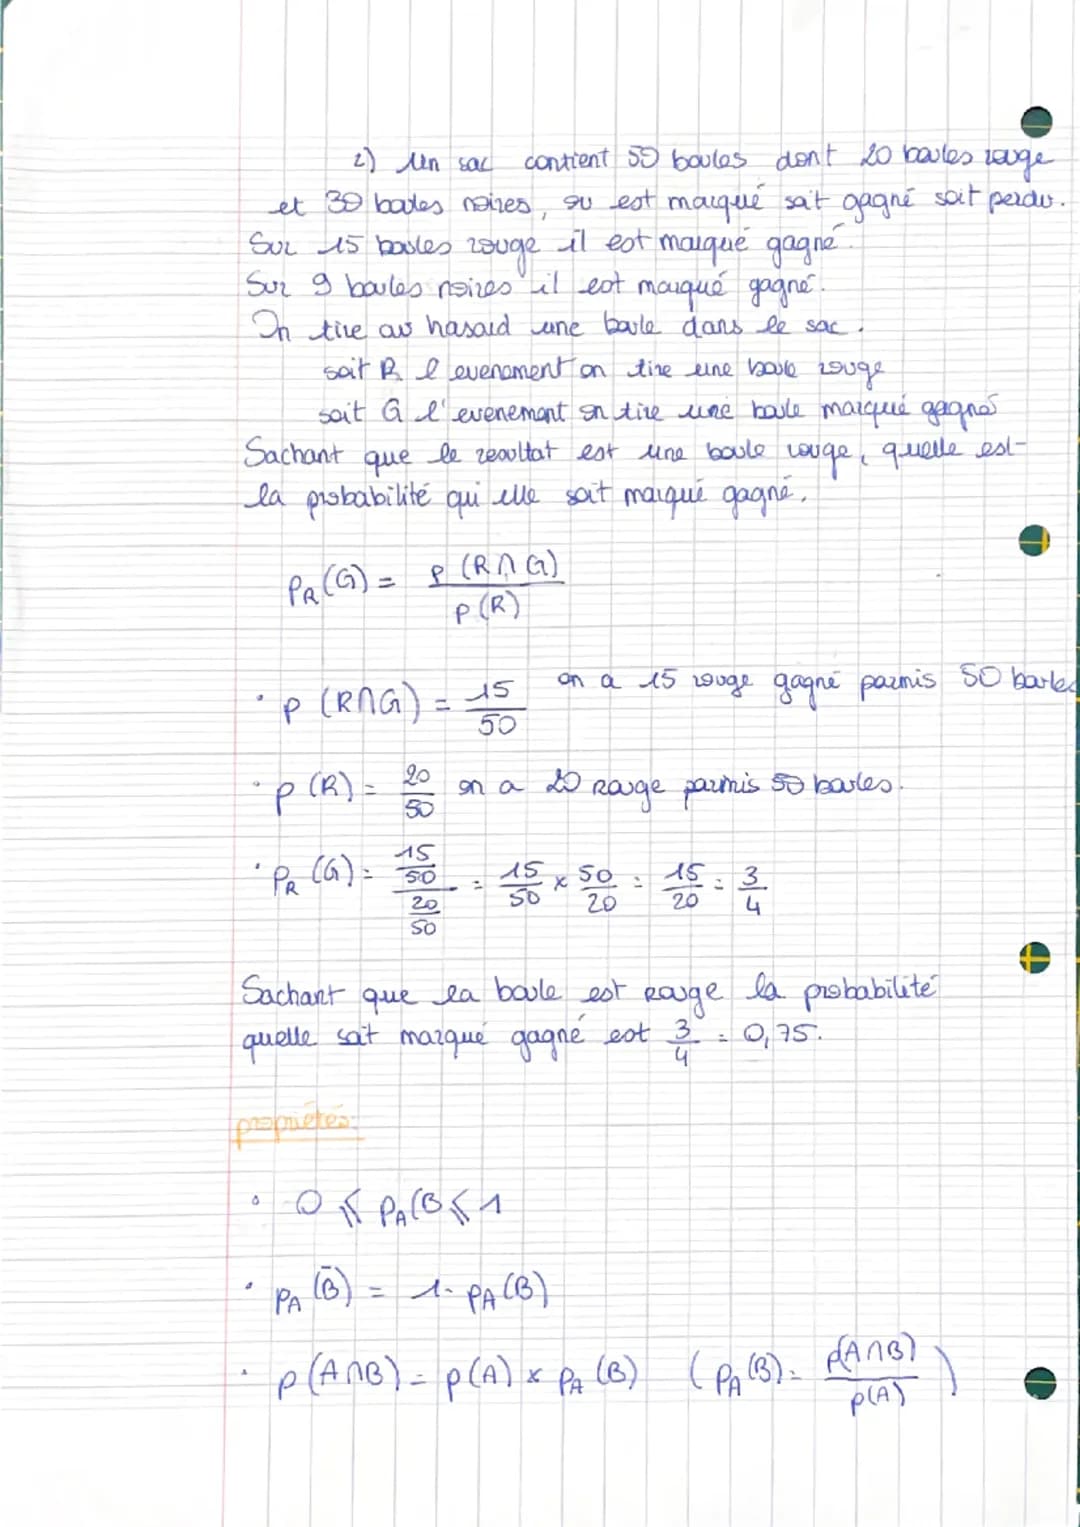 2) Un sac contient 50 boules dont 20 boules rouge
et 30 boules noires, ou est marqué soit gagné soit perdu.
Sur 15 boules rouge il est marqué gagné.
Sur 9 boules noires il est marqué gagné.
On tire au hasard une boule dans le sac.
soit R l'evenement on tire une boule rouge
soit G l'evenement on tire une boule marqué gagné
Sachant que le resultat est une boule rouge, quelle est
la probabilité qui elle soit marqué gagné.
P_R(G) = p(R∩G)/p(R)
• p(R∩G) = 15/50 on a 15 rouge gagné parmis 50 boules
• p(R) = 20/50 on a 20 Rouge parmis 50 boules.
• P_R(G) = (15/50)/(20/50) = 15/50 × 50/20 = 15/20 = 3/4
Sachant que la boule est Rouge la probabilité
quelle soit marqué gagné est 3/4 = 0,75.
propriétés:
• 0 ⩽ P_A(B ⩽ 1
• P_A(B̄) = 1 - P_A(B)
• p(A∩B) = p(A) × P_A(B) (P_A(B) = p(A∩B)/p(A))